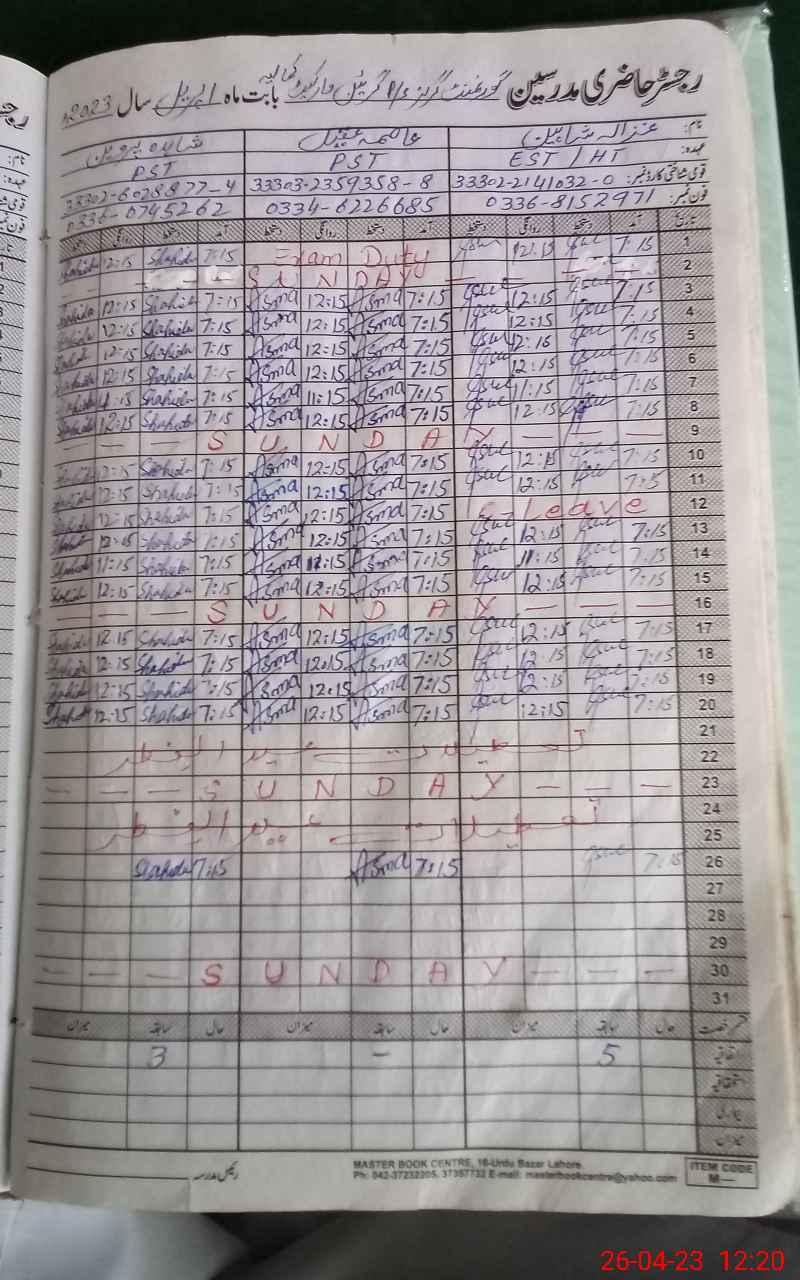 رجسٹر حاضری مدرسین گورنمنٹ گرلز بابت ماہ اپریل سال 2023ء
نام: غزالہ شاہین عاصمہ عقیل شاہدہ پروین
عہدہ: EST / HT PST PST
قومی شناختی کارڈ نمبر: 33302-2141032-0 33303-2359358-8 33302-6028877-4
فون نمبر: 0336-8152971 0334-6226685 0336-0745262
تاریخ آمد دستخط روانگی دستخط آمد دستخط روانگی دستخط آمد دستخط روانگی دستخط
1 7:15 12:15 Exam Duty 7:15 Shahida 12:15 Shahida
2 SUNDAY
3 7:15 12:15 7:15 Asma 12:15 Asma 7:15 Shahida 12:15 Shahida
4 7:15 12:15 7:15 Asma 12:15 Asma 7:15 Shahida 12:15 Shahida
5 7:15 12:15 7:15 Asma 12:15 Asma 7:15 Shahida 12:15 Shahida
6 7:15 12:15 7:15 Asma 12:15 Asma 7:15 Shahida 12:15 Shahida
7 7:15 11:15 7:15 Asma 11:15 Asma 7:15 Shahida 11:15 Shahida
8 7:15 12:15 7:15 Asma 12:15 Asma 7:15 Shahida 12:15 Shahida
9 — — — SUNDAY — — —
10 7:15 12:15 7:15 Asma 12:15 Asma 7:15 Shahida 12:15 Shahida
11 7:15 12:15 7:15 Asma 12:15 Asma 7:15 Shahida 12:15 Shahida
12 Leave 7:15 Asma 12:15 Asma 7:15 Shahida 12:15 Shahida
13 7:15 12:15 7:15 Asma 12:15 Asma 7:15 Shahida 12:15 Shahida
14 7:15 11:15 7:15 Asma 11:15 Asma 7:15 Shahida 11:15 Shahida
15 7:15 12:15 7:15 Asma 12:15 Asma 7:15 Shahida 12:15 Shahida
16 — — — SUNDAY — — —
17 7:15 12:15 7:15 Asma 12:15 Asma 7:15 Shahida 12:15 Shahida
18 7:15 12:15 7:15 Asma 12:15 Asma 7:15 Shahida 12:15 Shahida
19 7:15 12:15 7:15 Asma 12:15 Asma 7:15 Shahida 12:15 Shahida
20 7:15 12:15 7:15 Asma 12:15 Asma 7:15 Shahida 12:15 Shahida
21
22 تعطیلات عید الفطر
23 — — — SUNDAY — — —
24
25 تعطیلات عید الفطر
26 7:15 7:15 Asma 7:15 Shahida
27
28
29
30 — — — SUNDAY — — —
31
قسم رخصت حال سابقہ میزان حال سابقہ میزان حال سابقہ میزان
اتفاقیہ 5 - 3
استحقاقیہ
بیماری
میزان
رئیس مدرسہ
MASTER BOOK CENTRE, 16-Urdu Bazar Lahore.
Ph: 042-37232205, 37357732 E-mail: masterbookcentre@yahoo.com
ITEM CODE
M—
26-04-23 12:20